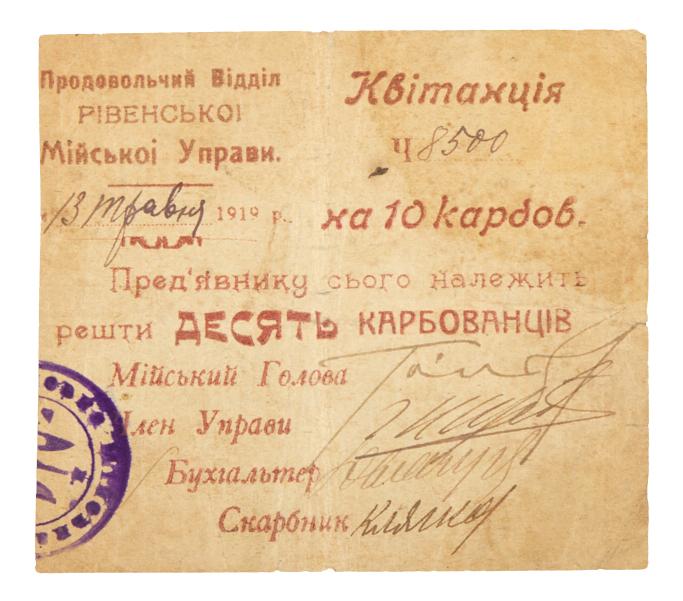 Продовольчий Відділ
РІВЕНСЬКОІ
Мійськоі Управи.
13 травня 1919 р.
Квітанція
Ч 8500
на 10 карбов.
Пред'явнику сього належить
решти ДЕСЯТЬ КАРБОВАНЦІВ
Мійський Голова
Член Управи
Бухгальтер
Скарбник